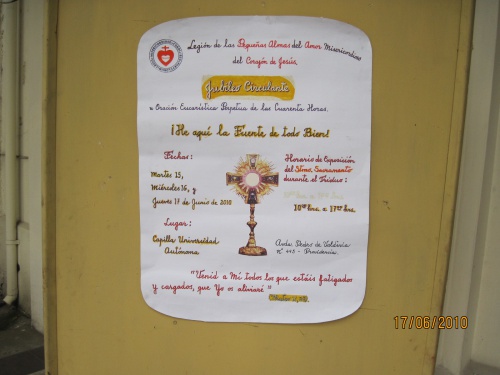 Legión de las Pequeñas Almas del Amor Misericordioso
del Corazón de Jesús.
Jubileo Circulante
Oración Eucarística Perpetua de las Cuarenta Horas.
¡He aquí la Fuente de todo Bien!
Fechas:
Martes 15,
Miércoles 16, y
Jueves 17 de Junio de 2010
Horario de Exposición
del Stmo. Sacramento
durante el Triduo:
10 hrs. a 17 hrs.
Lugar:
Capilla Universidad
Autónoma
Avda. Pedro de Valdivia
- Providencia.
"Venid a Mí todos los que estáis fatigados
y cargados, que Yo os aliviaré"
17/06/2010